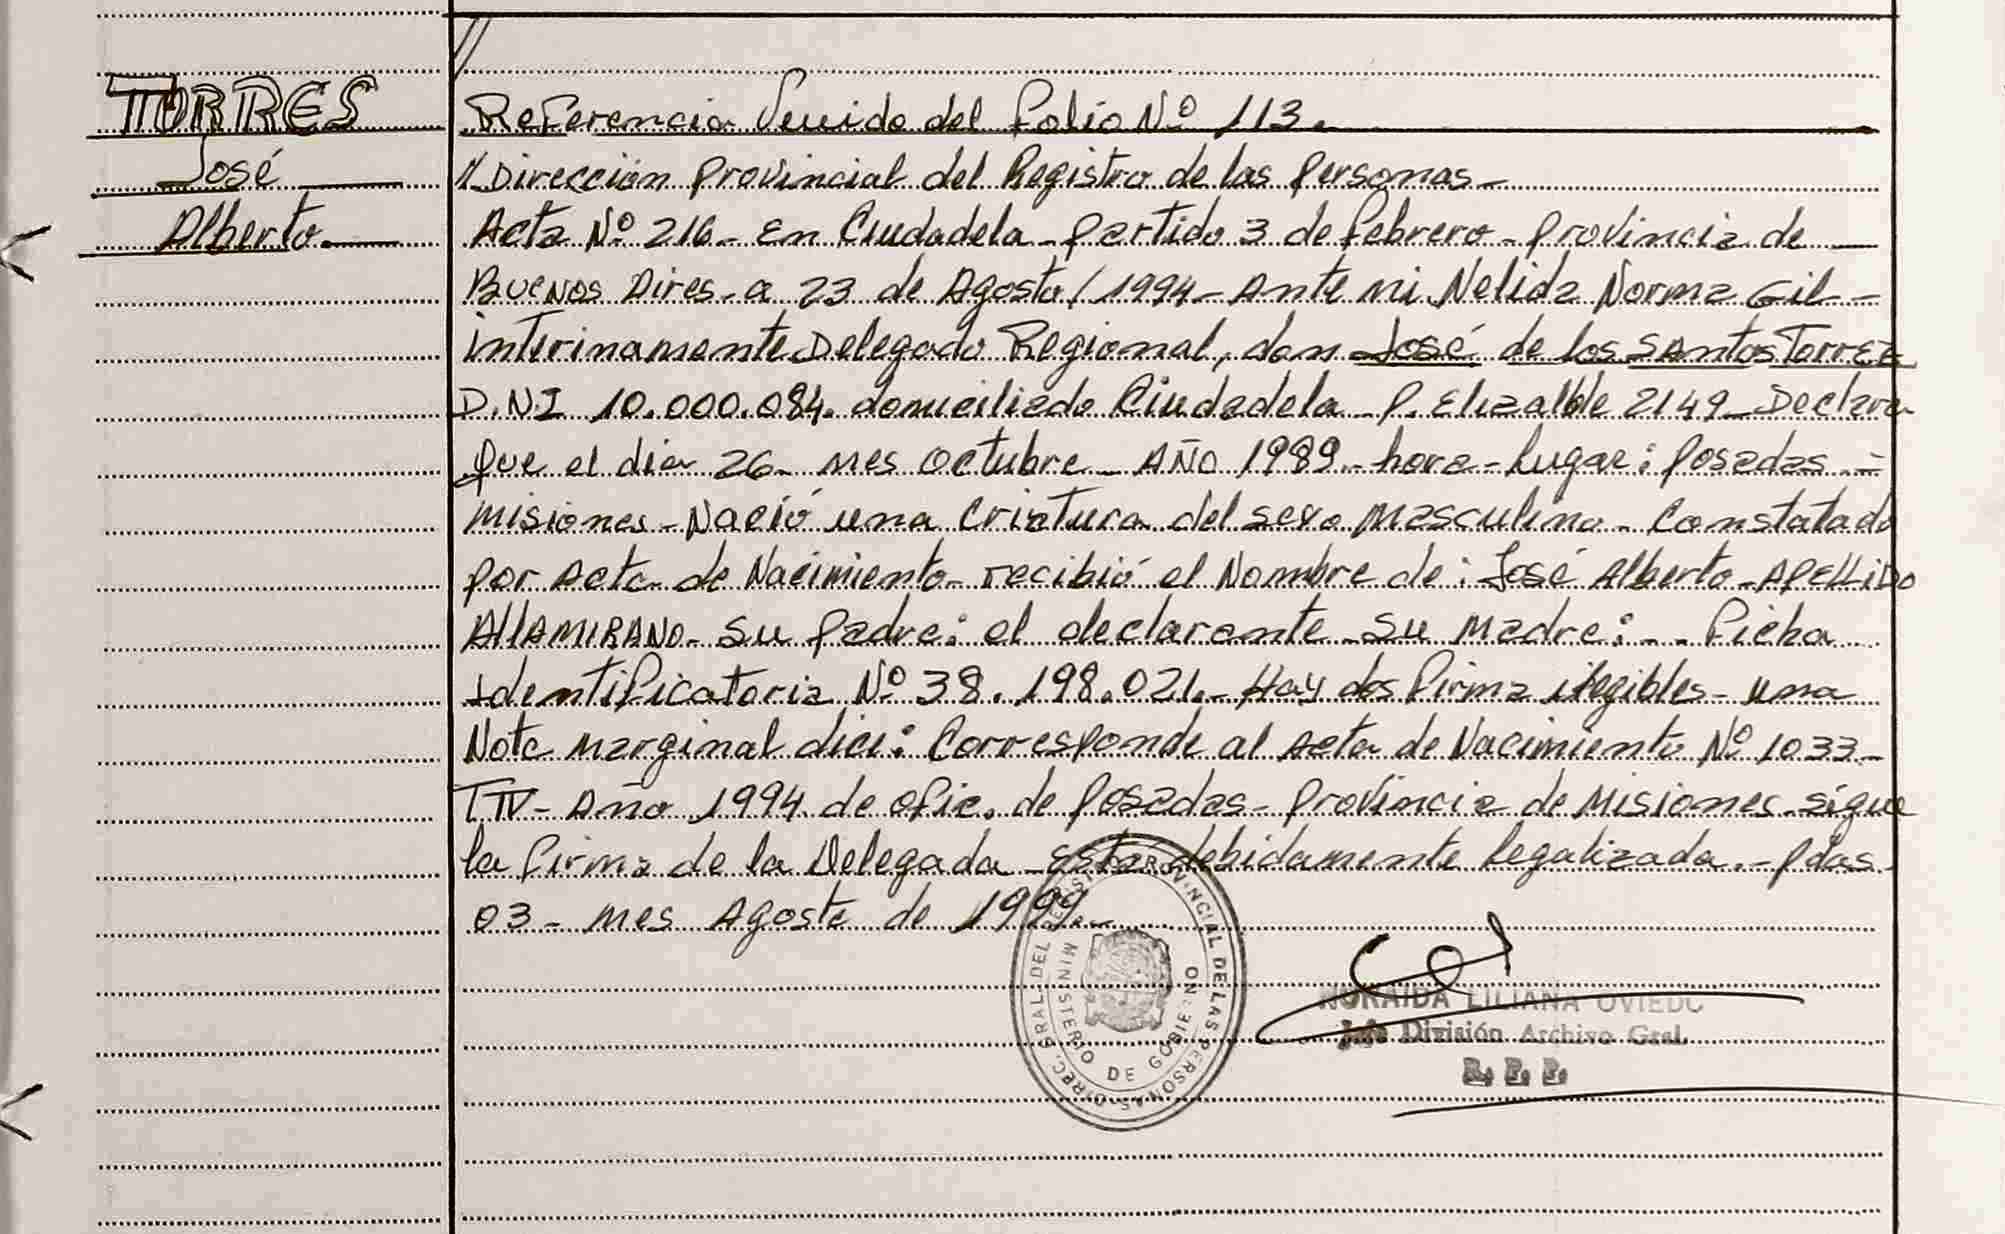 TORRES
José
Alberto.
//
Referencia Venido del folio Nº 113.
// Dirección provincial del Registro de las personas -
Acta Nº 216 - En Ciudadela - partido 3 de febrero - provincia de
Buenos Aires - a 23 de Agosto / 1994 - Ante mi Nelida Norma Gil -
interinamente Delegado Regional, don José de los Santos Torrez
D.N.I 10.000.084. domiciliado Ciudadela - P. Elizalde 2149 - Declara
que el dia 26 - mes octubre - AÑO 1989 - hora - lugar: posadas -
misiones - Nació una criatura del sexo masculino - Constatado
por Acta de Nacimiento - recibió el Nombre de: José Alberto - APELLIDO
AllAMIRANO - su padre: el declarante - su madre: - . Ficha
identificatoria Nº 38.198.021. - Hay dos firma ilegibles - una
Nota marginal dice: Corresponde al Acta de Nacimiento Nº 1033 -
TIV - Año 1994. de ofic. de posadas - provincia de Misiones - sigue
la firma de la Delegada - Esta debidamente legalizada. - pdas.
03 - mes Agosto de 1999 -
DIREC. GRAL. DEL REGISTRO PROVINCIAL DE LAS PERSONAS
MINISTERIO DE GOBIERNO
NORAIDA LILIANA OVIEDO
Jefe División Archivo Gral.
R. P. P.